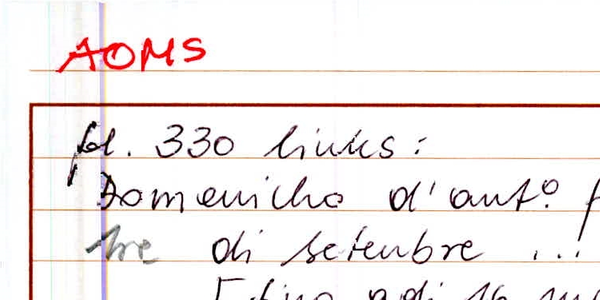 AOMS
fol. 330 links:
Domenicho d'ant.º
tre di setenbre ...
adi 16